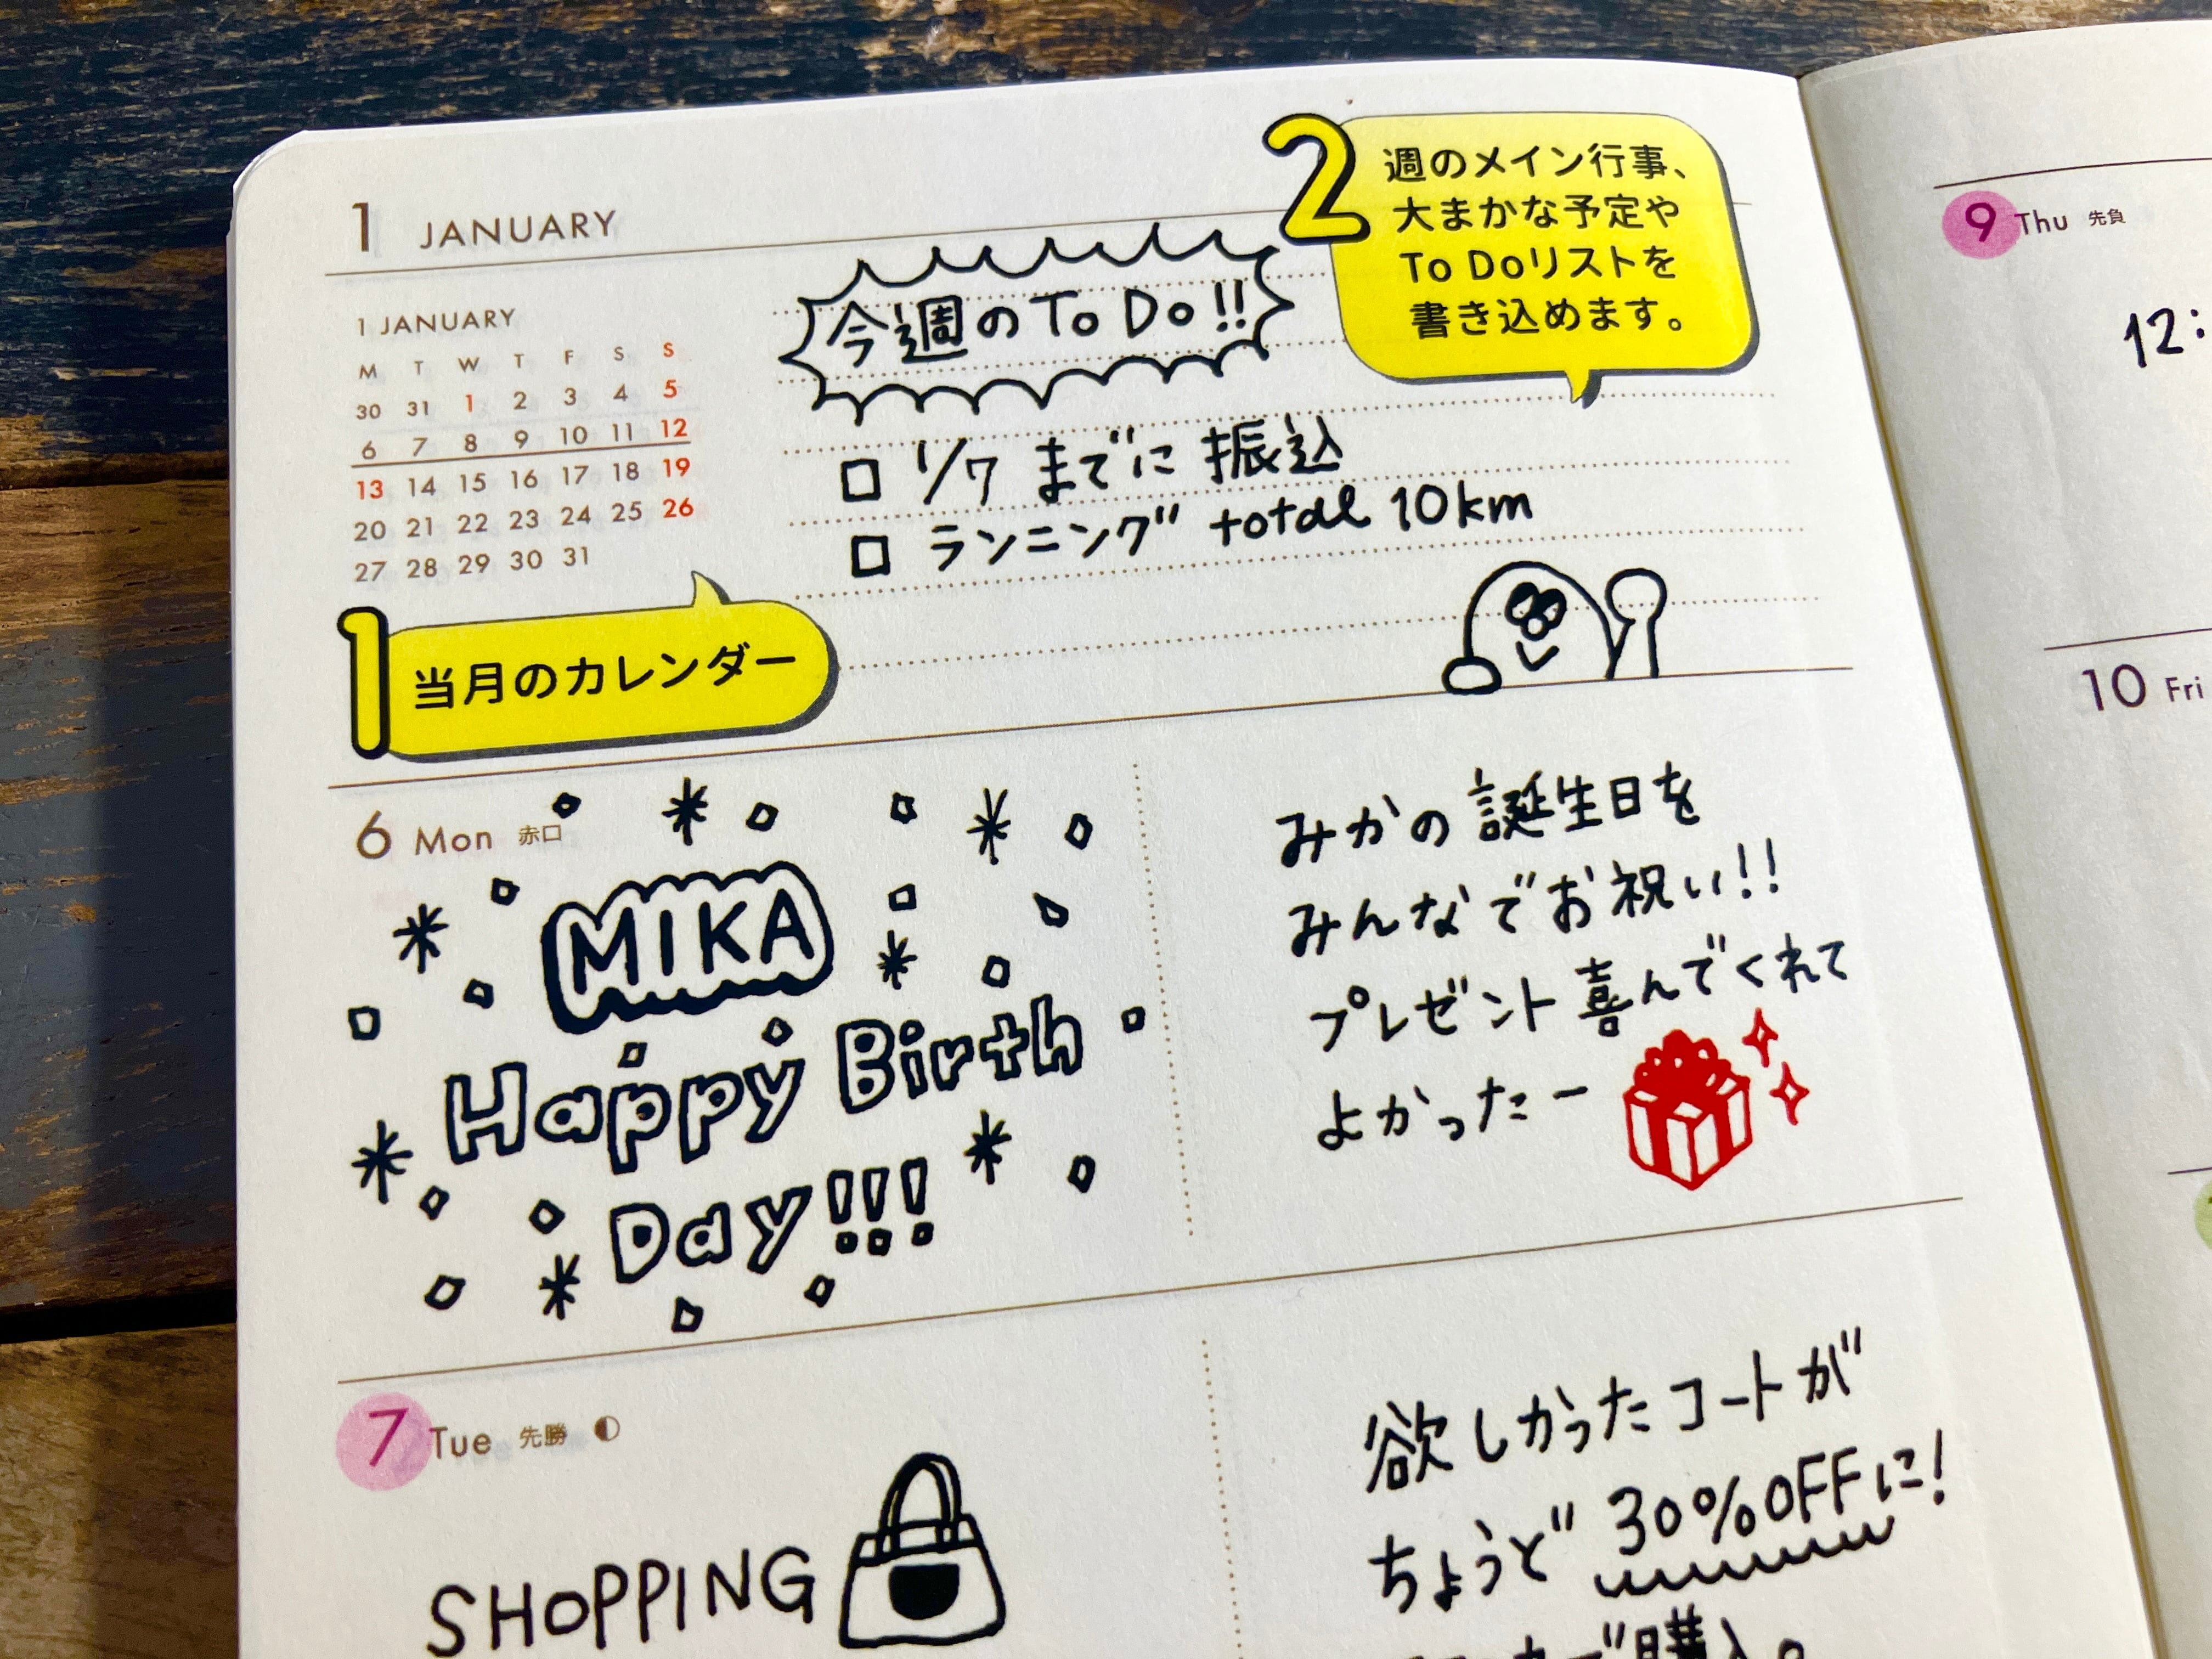 1 JANUARY
1 JANUARY
M T W T F S S
30 31 1 2 3 4 5
6 7 8 9 10 11 12
13 14 15 16 17 18 19
20 21 22 23 24 25 26
27 28 29 30 31
1 当月のカレンダー
今週のTo Do!!
2 週のメイン行事、
大まかな予定や
To Doリストを
書き込めます。
□ 1/7 までに 振込
□ ランニング total 10km
6 Mon 赤口
MIKA
Happy Birth
Day!!!
みかの誕生日を
みんなでお祝い!!
プレゼント喜んでくれて
よかったー
7 Tue 先勝
SHOPPING
欲しかったコートが
ちょうど 30%OFFに!
購入。
9 Thu 先負
12:
10 Fri